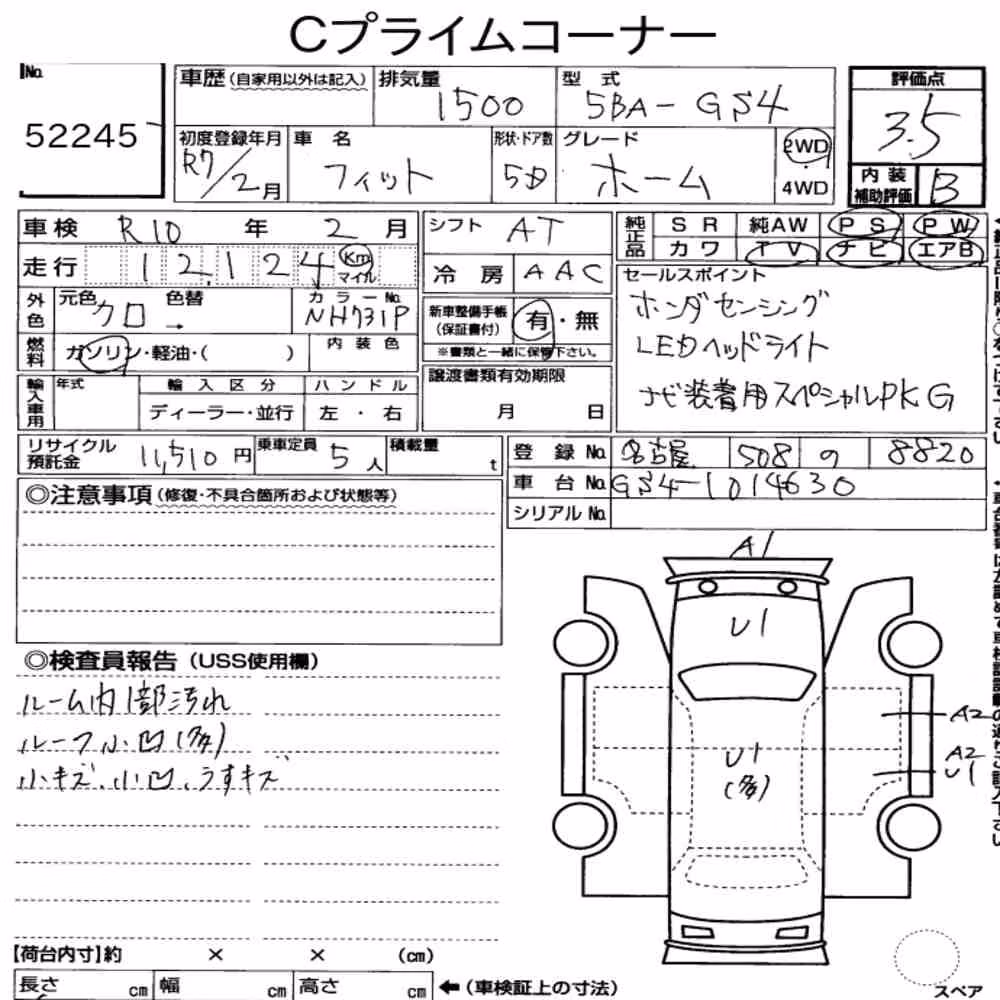 Cプライムコーナー
No. 52245
車歴(自家用以外は記入)
排気量 1500
型式 5BA-GS4
評価点 3.5
初度登録年月 R7/2月
車名 フィット
形状・ドア数 5D
グレード ホーム
2WD
4WD
内装補助評価 B
車検 R10年 2月
シフト AT
純正品 SR 純AW PS PW
カワ TV ナビ エアB
走行 12,124 Km マイル
冷房 AAC
セールスポイント
ホンダセンシング
LEDヘッドライト
ナビ装着用スペシャルPKG
外色 元色 クロ 色替 →
カラーNo. NH731P
新車整備手帳(保証書付) 有・無
※書類と一緒に保管下さい。
燃料 ガソリン・軽油・( )
内装色
輸入車用 年式 輸入区分 ハンドル
ディーラー・並行 左・右
譲渡書類有効期限
月 日
リサイクル預託金 11,510円
乗車定員 5人
積載量 t
登録No. 名古屋 508 の 8820
車台No. GS4-1014630
シリアルNo.
◎注意事項(修復・不具合箇所および状態等)
◎検査員報告(USS使用欄)
ルーム内1部汚れ
ルーフ小凹(多)
小キズ、小凹、うすキズ
A1
U1
U1
(多)
A2
A2
U1
【荷台内寸】約 × × (cm)
長さ cm 幅 cm 高さ cm ←(車検証上の寸法)
スペア